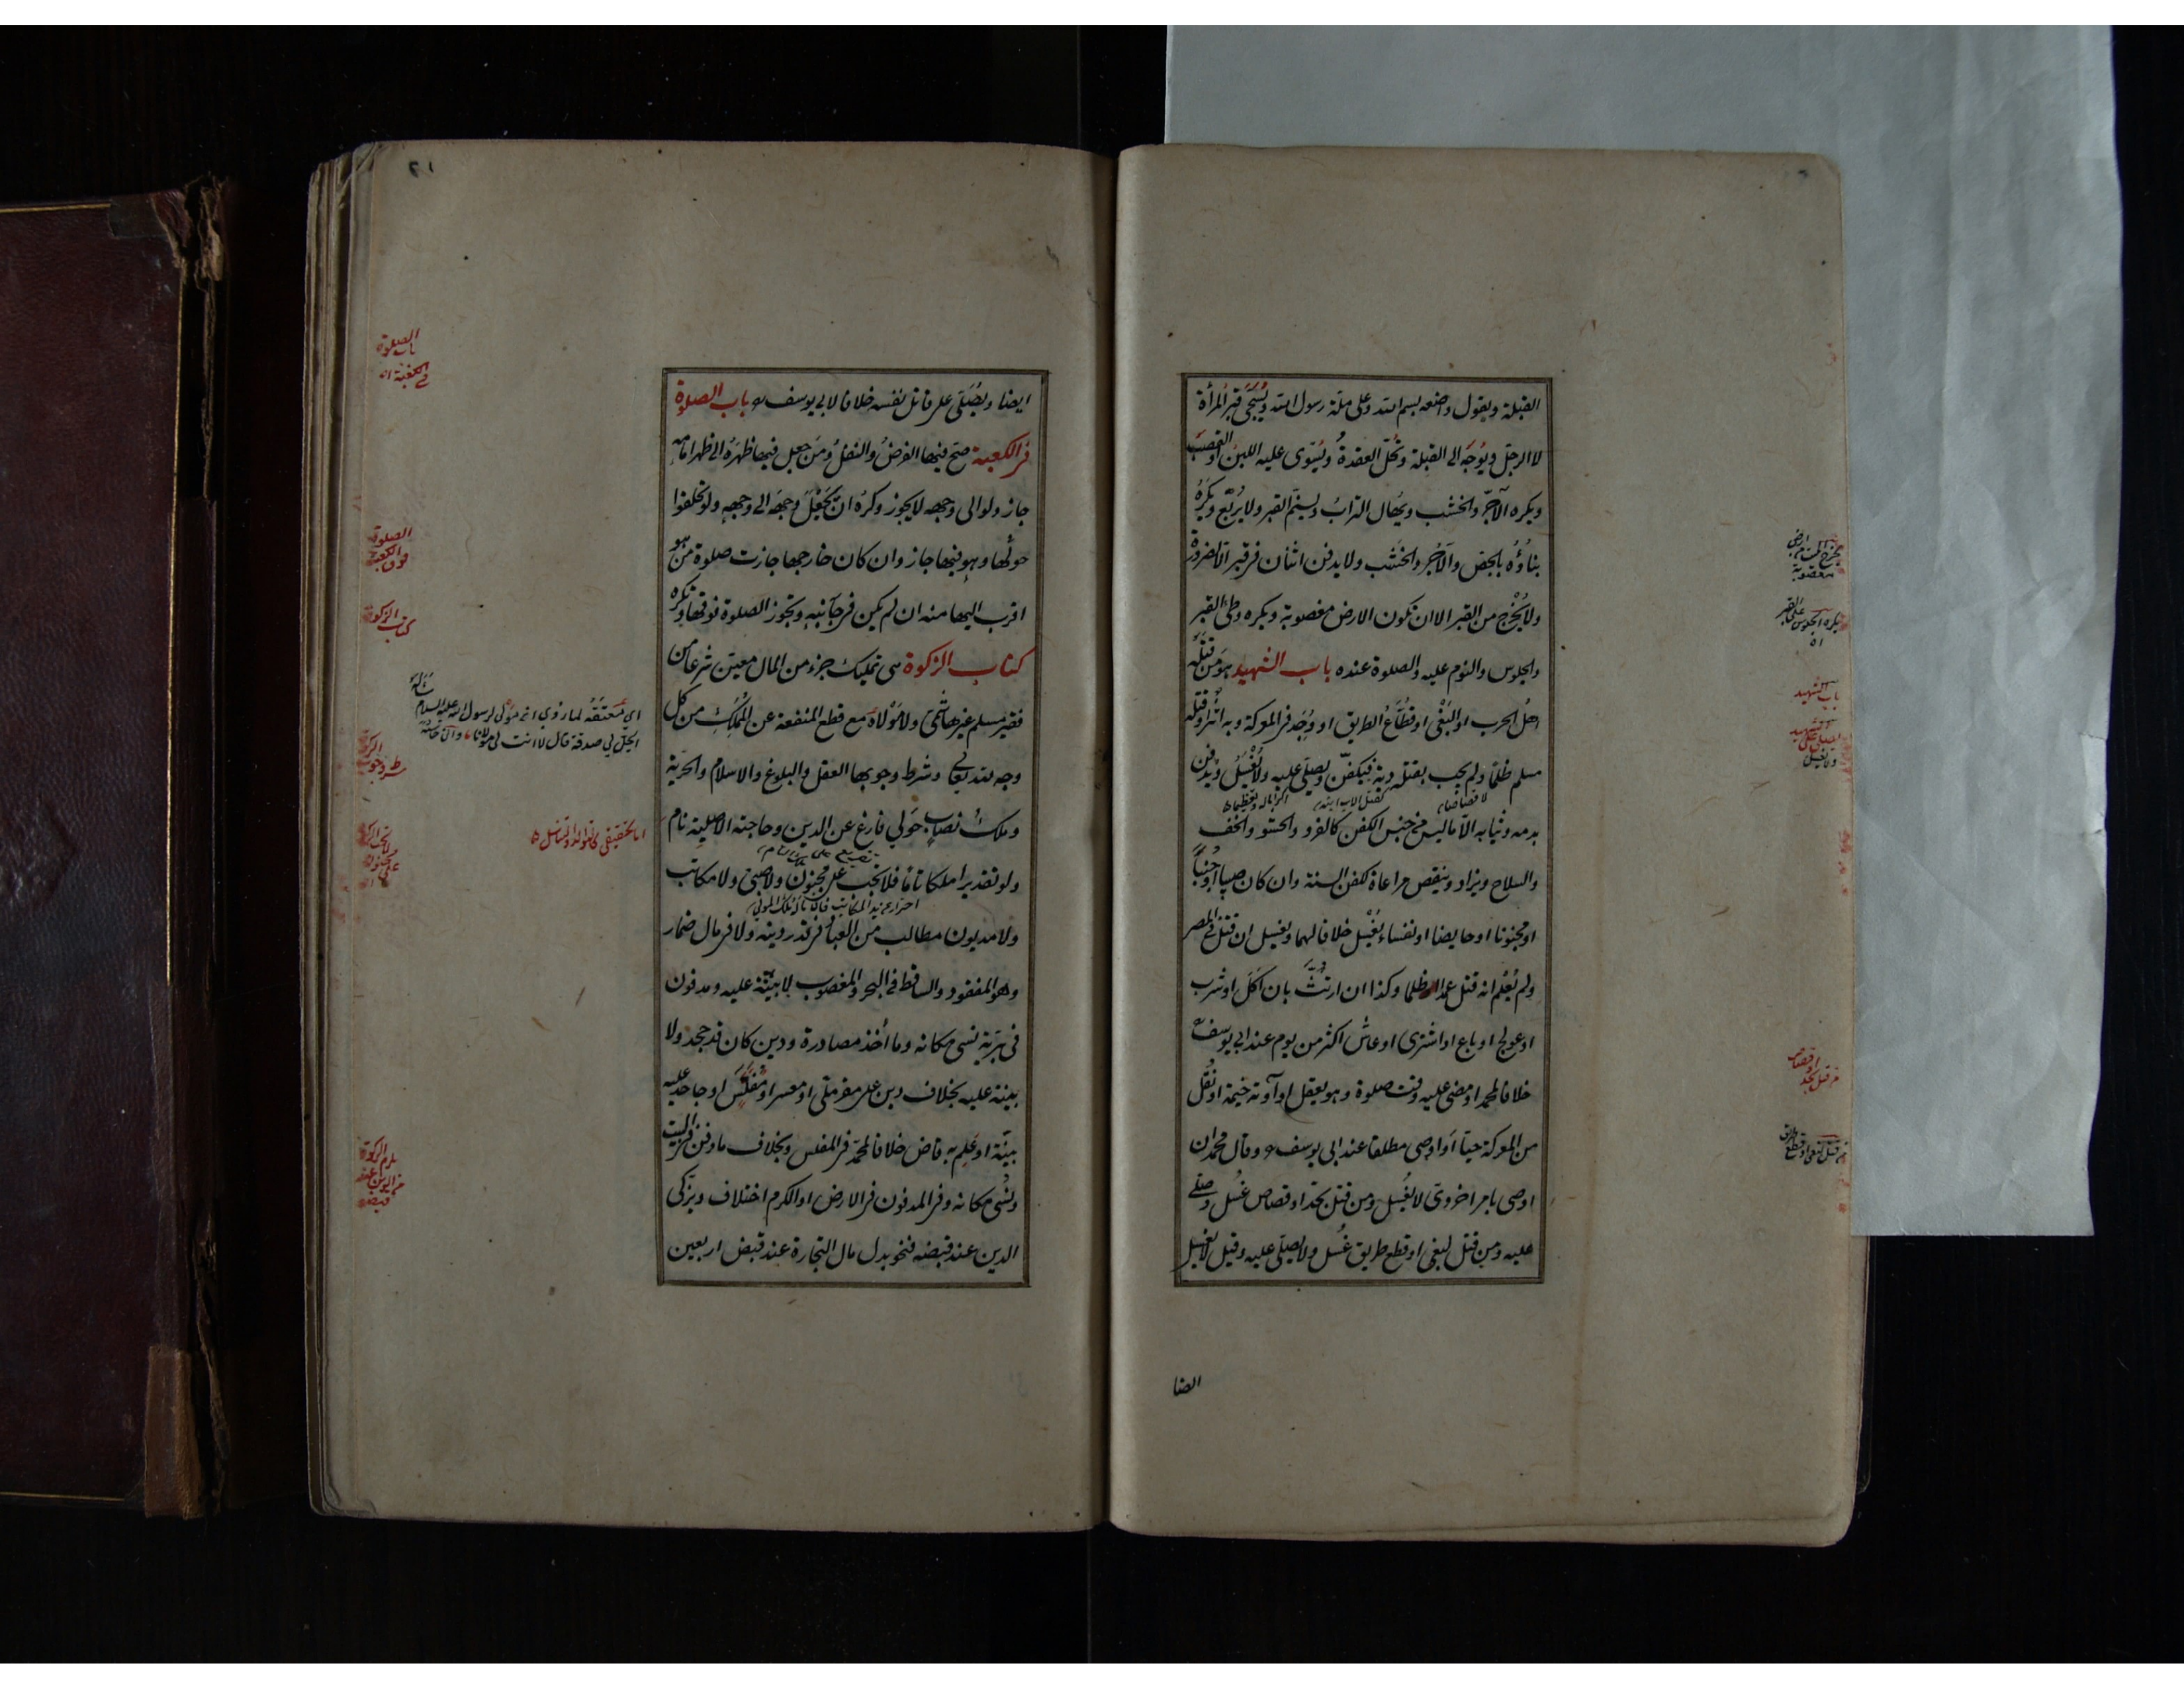 القبلة ويقول واضعه بسم الله وعلى ملة رسول الله ويُسَجَّى قبر المرأة
لا الرجل ويُوَجّه الى القبلة وتُحَل العقدةُ ويُسَوّى عليه اللبن او القصب
ويكره الآجرّ والخشب ويُهال التراب ويسنّم القبر ولا يُربّع ويكره
بناؤه بالجص والآجر والخشب ولا يدفن اثنان فى قبر الا لضرورة
ولا يُخْرَج من القبر الا ان تكون الارض مغصوبة ويكره وطئ القبر
والجلوس والنوم عليه والصلوة عنده باب الشهيد هو من قتله
اهل الحرب او البَغْى او قطّاعُ الطريق او وُجِد فى المعركة وبه اثر او قتله
مسلم ظلما ولم يجب بقتله دية فيكفّن ويصلّى عليه ولا يُغْسَلُ ويدفن
لا قصاصا كقتل الاب ابنه اكراما له وتعظيما
بدمه وثيابه الّا ما ليس من جنس الكفن كالفرو والحشو والخف
والسلاح ويزاد وينقص مراعاة لكفن السنة وان كان صبيا او جُنُباً
او مجنونا او حايضا او نفساء يُغسّل خلافا لهما ويغسل ان قتل فى المصر
ولم يُعْلم انه قتل عمدا ظلما وكذا ان ارتُثَّ بان اَكَلَ او شرب
او عولج او باع او اشترى او عاش اكثر من يوم عند ابى يوسف
خلافا لمحمد او مضى عليه وقت صلوة وهو يعقل او آوته خيمة او نُقل
من المعركة حيّا او اوصى مطلقا عند ابى يوسف وقال محمد ان
اوصى بامر اخروىّ لا يُغْسل ومن قتل بحد او قصاص غُسل وصلى
عليه ومن قتل لبغى او قطع طريق غُسل ولا يصلّى عليه وقيل لا يغسل
ايضا
يخرج الميت من ارض
مغصوبة
يكره الجلوس على القبر
باب الشهيد
يصلى على الشهيد
ولا يغسل
من قتل بحد او قصاص
من قتل لبغى او قطع طريق
٢١
ايضا ويُصَلّى على قاتل نفسه خلافا لابى يوسف باب الصلوة
فى الكعبة صح فيها الفرضُ والنفلُ ومَن جعل فيها ظهرَهُ الى ظهر امامه
جاز ولو الى وجهه لا يجوز وكره ان يَجْعَلَ وجهَه الى وجهه ولو تحلقوا
حولها وهو فيها جاز وان كان خارجها جازت صلوة من هو
اقرب اليها منه ان لم يكن فى جانبه وتجوز الصلوة فوقها وتكره
كتاب الزكوة هى تمليك جزء من المال معيّن شرعا من
فقير مسلم غير هاشمى ولا مَوْلاهُ مع قطع المنفعة عن المُمَلِّكِ من كل
وجه لله تعالى وشرط وجوبها العقل والبلوغ والاسلام والحرّية
وملكُ نصابٍ حَولي فارغ عن الدين وحاجته الاصلية نام
ولو تقديرا ملكا تاما فلا تجب على مجنون ولا صبى ولا مكاتب
ولا مديون مطالب من العباد فى قدر دينه ولا فى مال ضمار
وهو المفقود والساقط فى البحر والمغصوب لا بيّنة عليه ومدفون
فى بَرّية نسى مكانه وما أُخذ مصادرة ودين كان قد جحد ولا
بينة عليه بخلاف دين على مقر ملىّ او معسر او مفلّس او جاحد عليه
بيّنة او علم به قاض خلافا لمحمّد فى المفلس وبخلاف ما دفن فى البيت
ونُسى مكانه وفى المدفون فى الارض او الكرم اختلاف ويزكى
الدين عند قبضه فنحو بدل مال التجارة عند قبض اربعين
باب الصلوة
فى الكعبة
الصلوة
فوق الكعبة
كتاب الزكوة
اى مُعتَقُه لما روى ان مولى لرسول الله عليه السلام سَأله
اتحل لى صدقة قال لا انت مولانا
شرط وجوب الزكوة
اما تحقيقى كالتوالد والتناسل